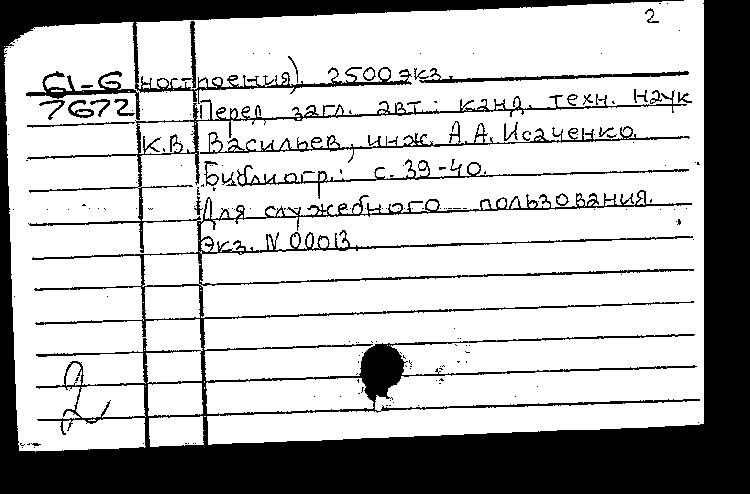 2
61-6 ностроения). 2500 экз.
7672 Перед загл. авт.: канд. техн. наук
К.В. Васильев, инж. А.А. Исаченко.
Библиогр.: с. 39-40.
Для служебного пользования.
Экз. N 00013.
2